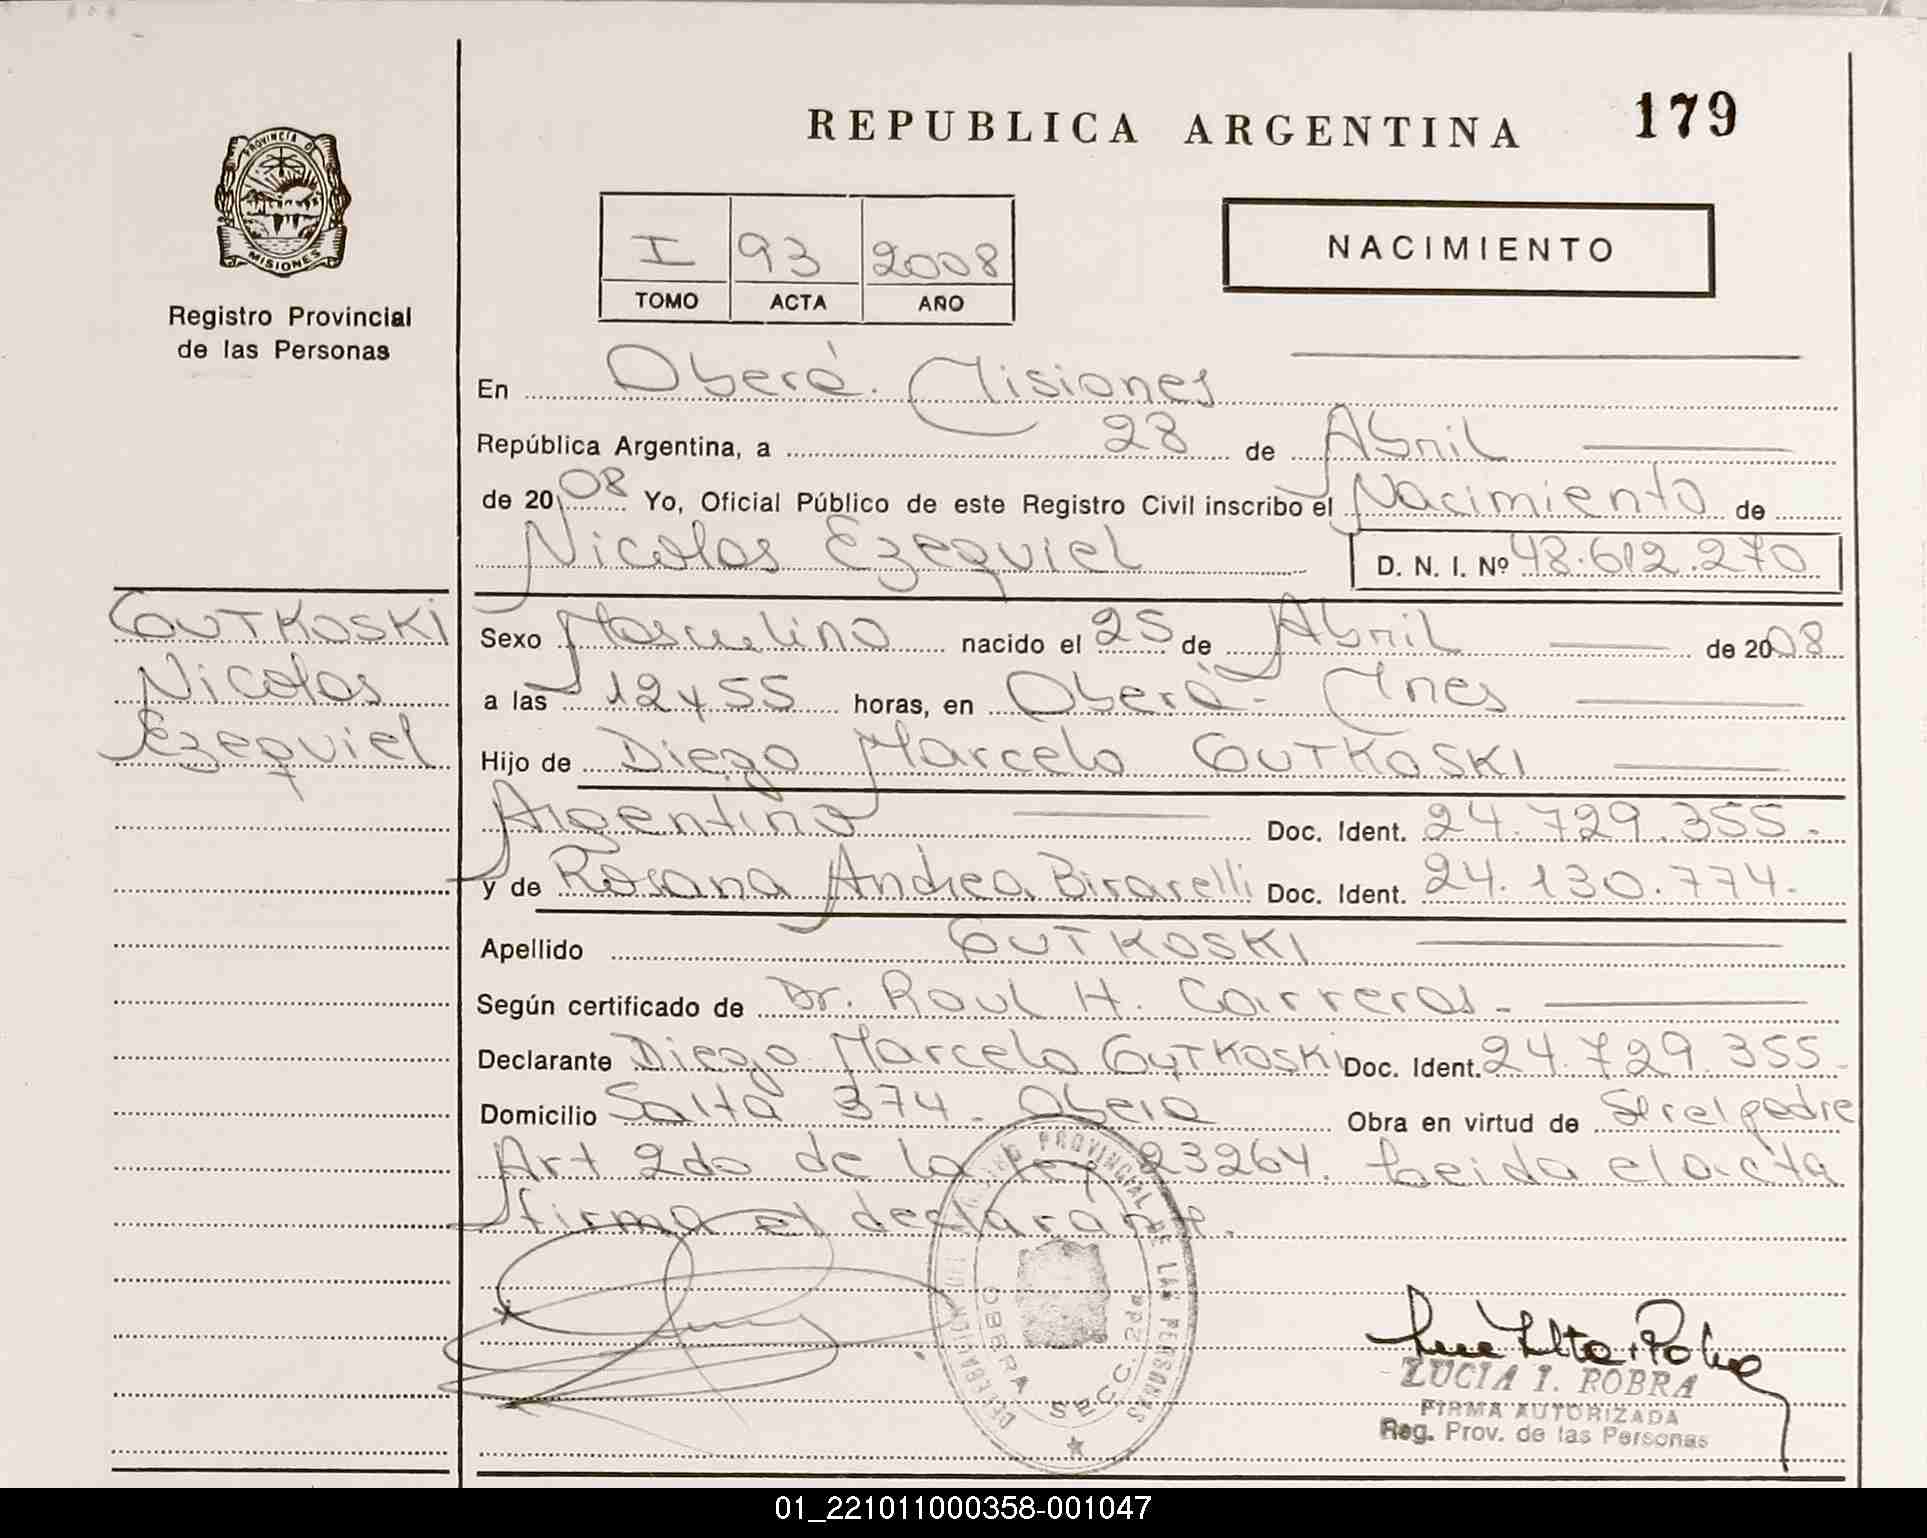 REPUBLICA ARGENTINA 179
PROVINCIA DE
MISIONES
Registro Provincial
de las Personas
I 93 2008
TOMO ACTA AÑO
NACIMIENTO
En Oberá. Misiones
República Argentina, a 28 de Abril
de 2008 Yo, Oficial Público de este Registro Civil inscribo el Nacimiento de
Nicolas Ezequiel D. N. I. Nº 48.612.270
GUTKOSKI
Nicolas
Ezequiel
Sexo Masculino nacido el 25 de Abril de 2008
a las 12 y 55 horas, en Oberá - Mnes
Hijo de Diego Marcelo GUTKOSKI
Argentino Doc. Ident. 24.729.355.
y de Rosana Andrea Birarelli Doc. Ident. 24.130.774.
Apellido GUTKOSKI
Según certificado de Dr. Raul H. Carreras -
Declarante Diego Marcelo GUTKOSKI Doc. Ident. 24.729.355-
Domicilio Salta 374 - Obera Obra en virtud de Ser el padre
Art 2do de la ley 23264. Leida el acta
firma el declarante.
REGISTRO PROVINCIAL DE LAS PERSONAS
DELEGACION
OBERA SECC. 2da.
LUCIA I. ROBRA
FIRMA AUTORIZADA
Reg. Prov. de las Personas
01_221011000358-001047